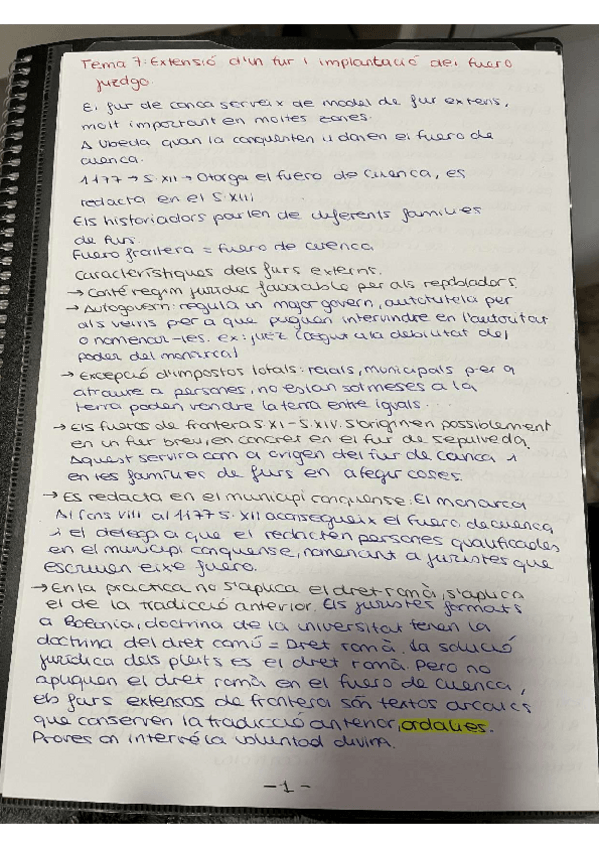 Tema 7: Extensió d'un fur i implantació del fuero
juzgo.
El fur de conca serveix de model de fur extens,
molt important en moltes zones.
A Ubeda quan la conquenten li donen el fuero de
cuenca.
1177 → S. XII → Otorga el fuero de cuenca, es
redacta en el S. XIII
Els historiadors parlen de diferents famílies
de furs.
Fuero frontera = fuero de cuenca
Característiques dels furs externs.
→ Conté regim jurídic favorable per als repobladors.
→ Autogovern: regula un major govern, autotutela per
als veïns per a que puguen intervindre en l'autoritat
o nomenar-les. ex: juez (degut a la debilitat del
poder del monarca)
→ Excepció d'impostos totals: reials, municipals per a
atraure a persones, no estan sotmeses a la
terra poden vendre la terra entre iguals...
→ Els fueros de frontera S. XI - S. XIV. S'originen possiblement
en un fur breu, en concret en el fur de sepulveda.
Aquest servira com a origen del fur de conca i
en les famílies de furs en afegir coses.
→ Es redacta en el municipi conquense: El monarca
Alfons VIII al 1177 S. XII aconsegueix el fuero de cuenca
i el delega a que el redacten persones qualificades
en el municipi conquense, nomenant a juristes que
escriuen eixe fuero.
→ En la practica no s'aplica el dret romà, s'aplica
el de la tradicció anterior. Els juristes formats
a Bolonia, doctrina de la universitat tenen la
doctrina del dret comú = Dret romà. La solució
jurídica dels pleits es el dret romà. Pero no
apliquen el dret romà en el fuero de cuenca,
els furs extensos de frontera són textos arcaics
que conserven la tradicció anterior, ordalies.
Proves on intervé la voluntad divina.
-1-